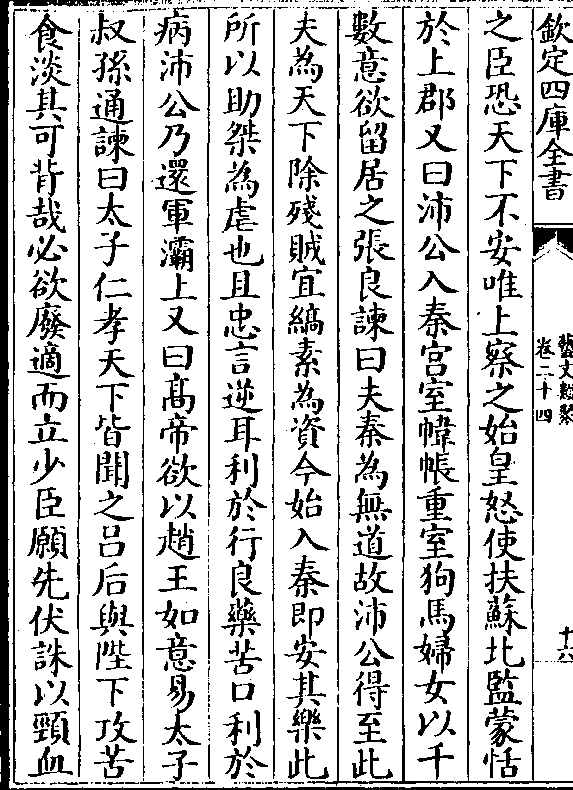 欽定四庫全書
藝文類聚
卷二十四
十六
之臣恐天下不安唯上察之始皇怒使扶蘇北監蒙恬
於上郡又曰沛公入秦宫室幃帳重室狗馬婦女以千
數意欲留居之張良諫曰夫秦為無道故沛公得至此
夫為天下除殘賊宜縞素為資今始入秦即安其樂此
所以助桀為虐也且忠言逆耳利於行良藥苦口利於
病沛公乃還軍灞上又曰髙帝欲以趙王如意易太子
叔孫通諫曰太子仁孝天下皆聞之吕后與陛下攻苦
食淡其可背哉必欲廢適而立少臣願先伏誅以頸血